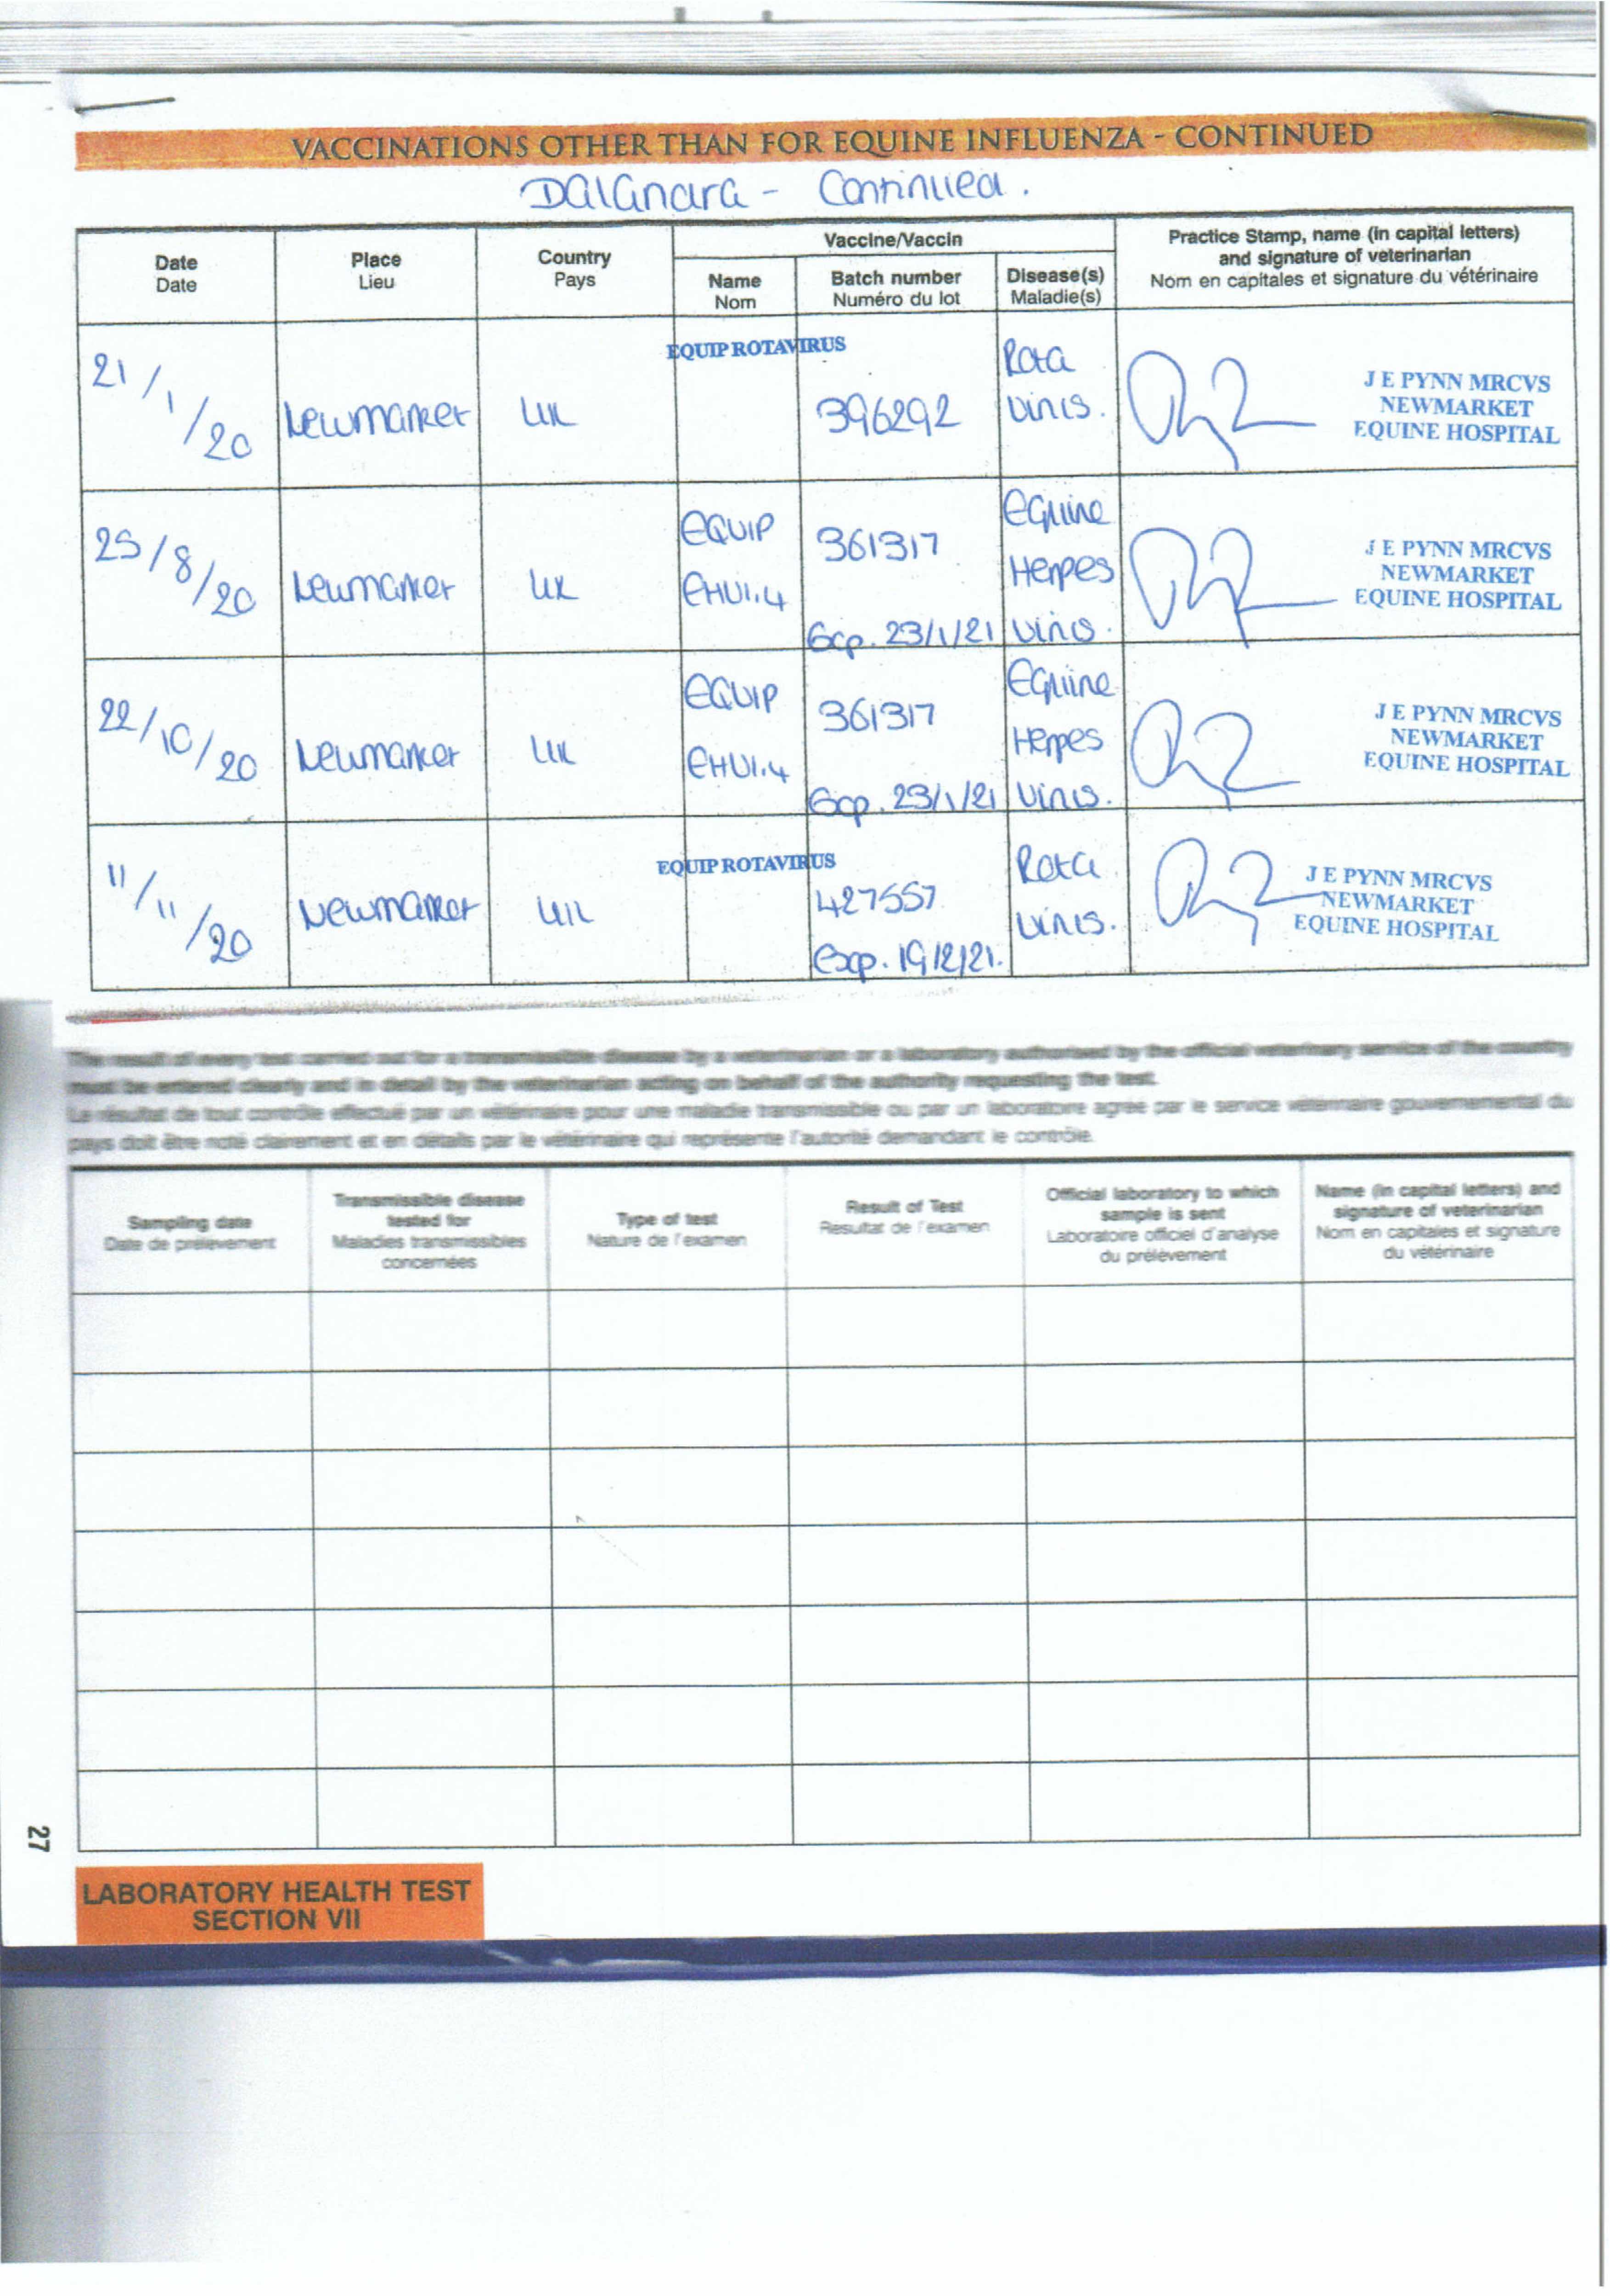 VACCINATIONS OTHER THAN FOR EQUINE INFLUENZA - CONTINUED
Dalanara - Continued.
Date
Date
Place
Lieu
Country
Pays
Vaccine/Vaccin
Name
Nom
Batch number
Numéro du lot
Disease(s)
Maladie(s)
Practice Stamp, name (in capital letters)
and signature of veterinarian
Nom en capitales et signature du vétérinaire
21/1/20 Newmarket UK EQUIP ROTAVIRUS 396292 Rota virus.
J E PYNN MRCVS
NEWMARKET
EQUINE HOSPITAL
25/8/20 Newmarket UK EQUIP EHV1.4 361317 Exp. 23/1/21 Equine Herpes virus.
J E PYNN MRCVS
NEWMARKET
EQUINE HOSPITAL
22/10/20 Newmarket UK EQUIP EHV1.4 361317 Exp. 23/1/21 Equine Herpes virus.
J E PYNN MRCVS
NEWMARKET
EQUINE HOSPITAL
11/11/20 Newmarket UK EQUIP ROTAVIRUS 427557 exp. 19/2/21. Rota virus.
J E PYNN MRCVS
NEWMARKET
EQUINE HOSPITAL
The result of every test carried out for a transmissible disease by a veterinarian or a laboratory authorised by the official veterinary service of the country
must be entered clearly and in detail by the veterinarian acting on behalf of the authority requesting the test.
Le résultat de tout contrôle effectué par un vétérinaire pour une maladie transmissible ou par un laboratoire agréé par le service vétérinaire gouvernemental du
pays doit être noté clairement et en détails par le vétérinaire qui représente l'autorité demandant le contrôle.
Sampling date
Date de prélèvement
Transmissible disease
tested for
Maladies transmissibles
concernées
Type of test
Nature de l'examen
Result of Test
Resultat de l'examen
Official laboratory to which
sample is sent
Laboratoire officiel d'analyse
du prélèvement
Name (in capital letters) and
signature of veterinarian
Nom en capitales et signature
du vétérinaire
27
LABORATORY HEALTH TEST
SECTION VII